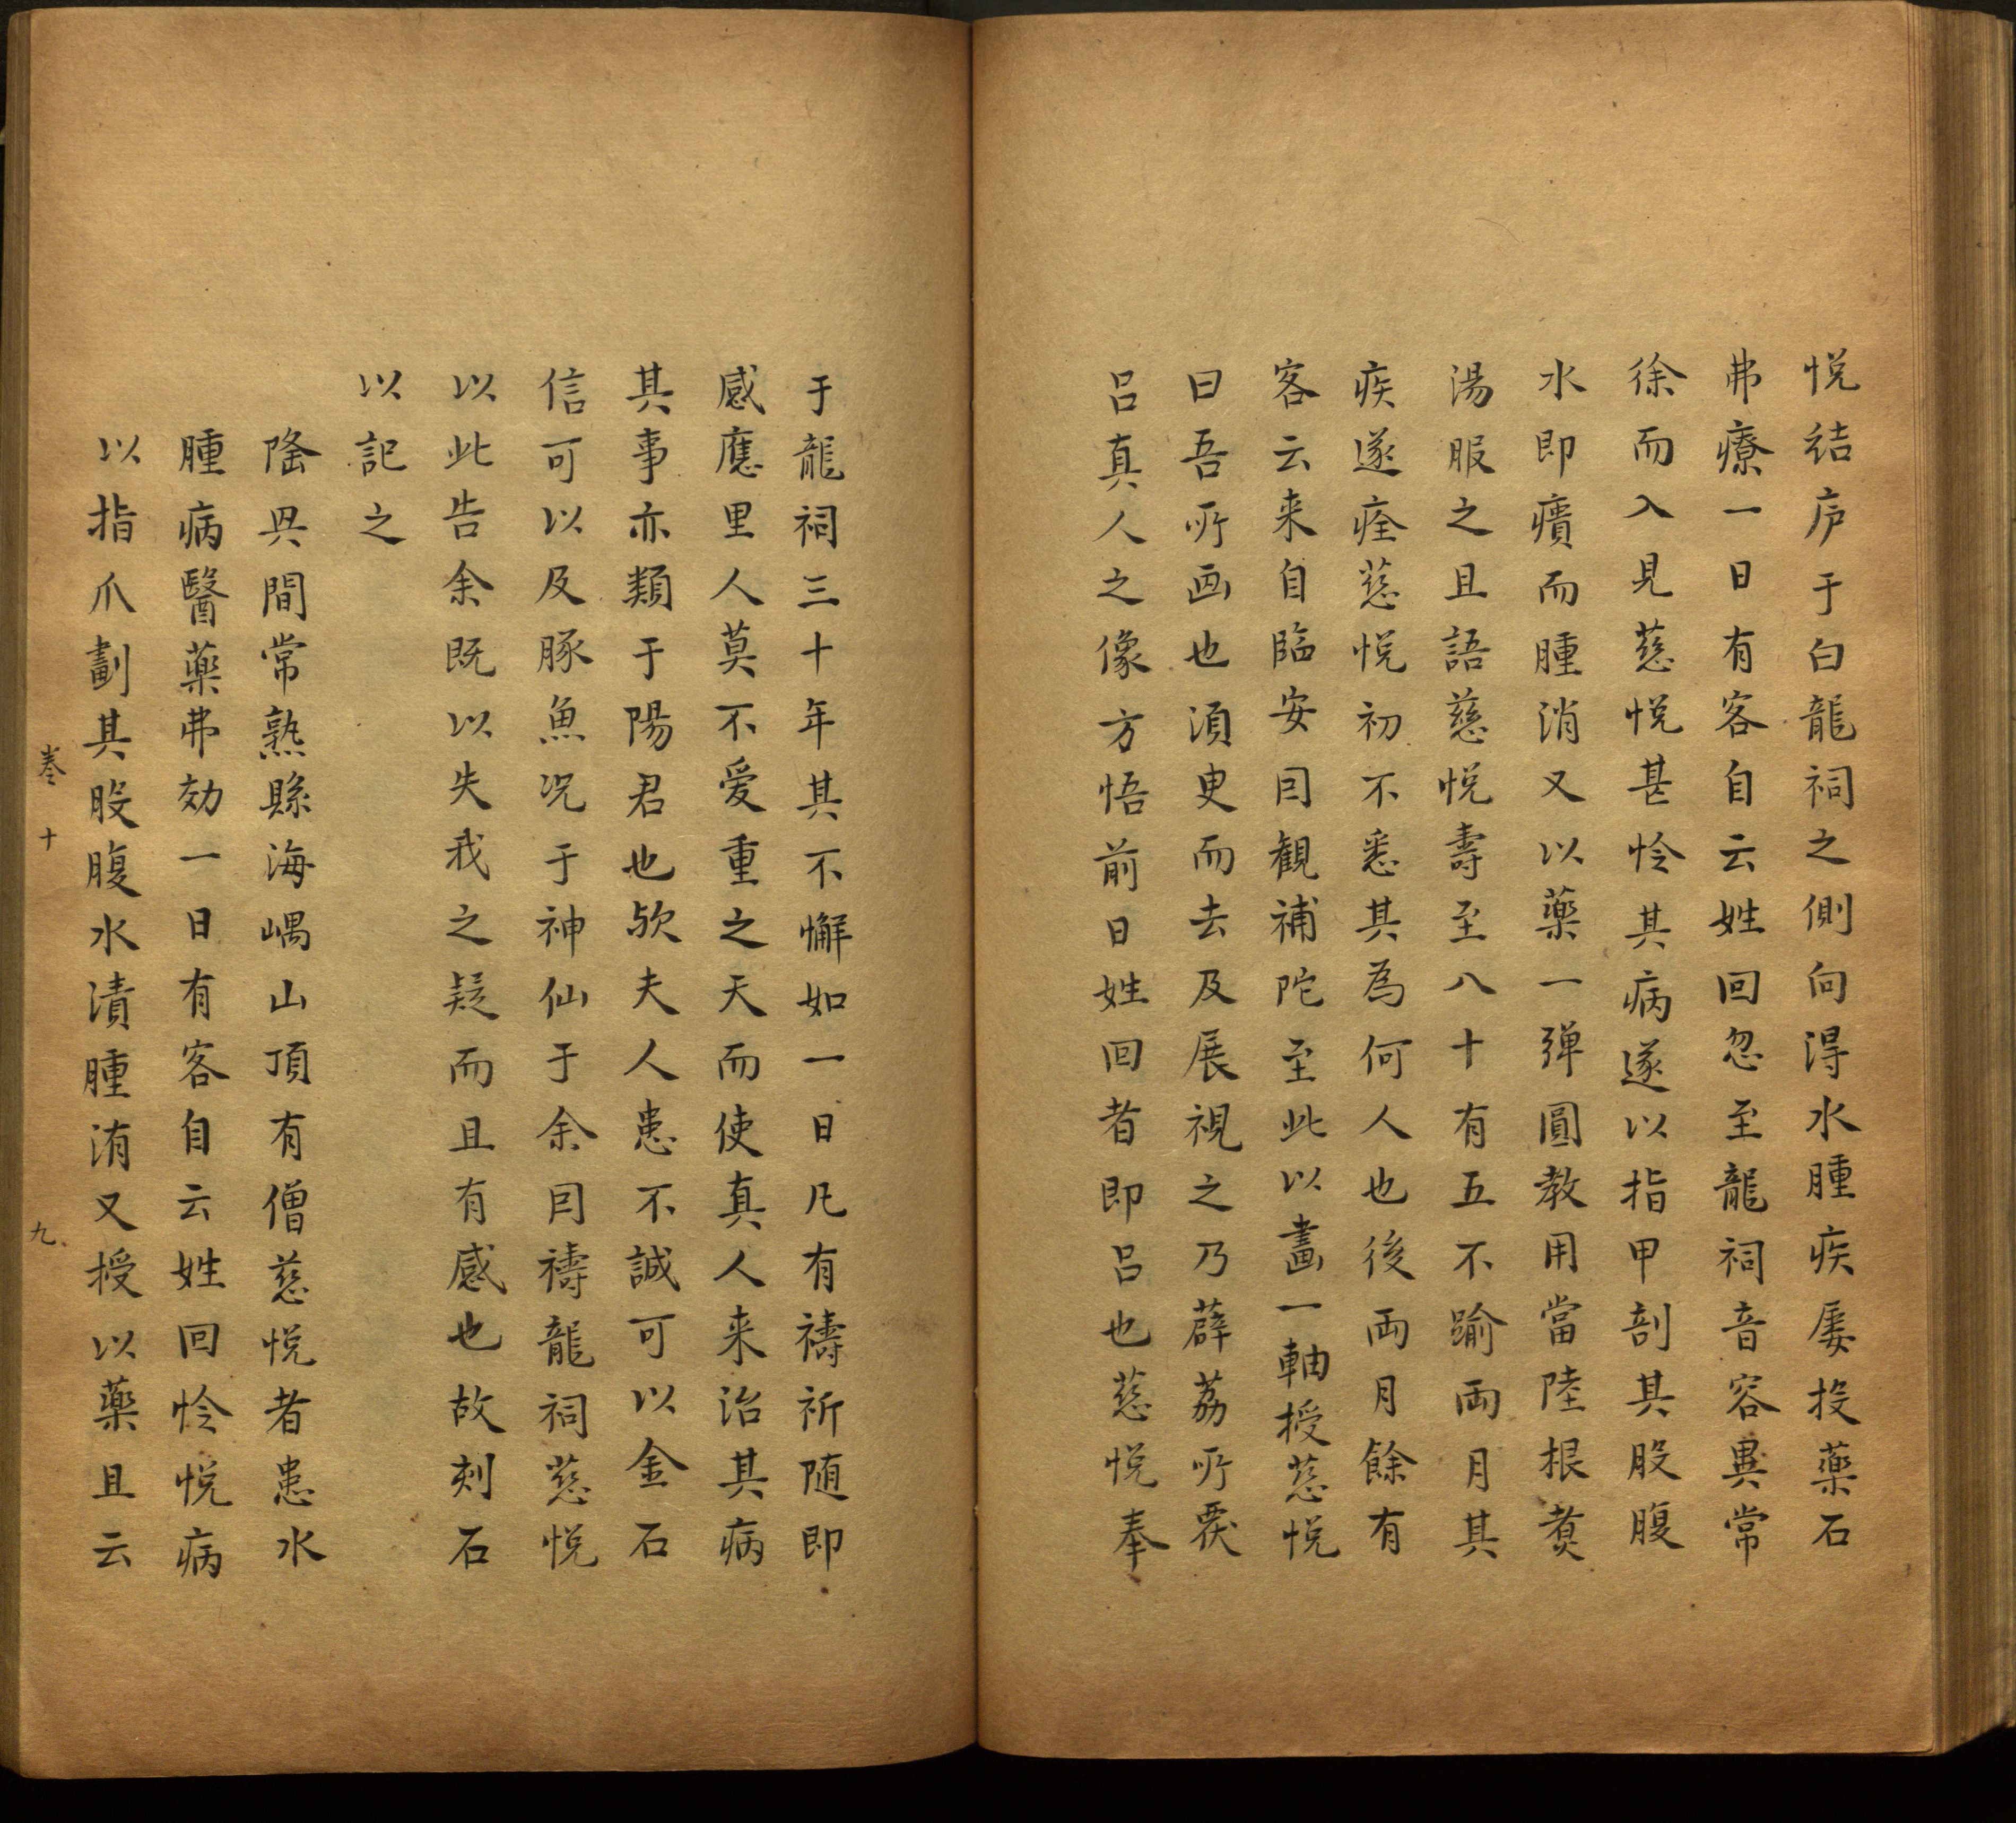 悦结庐于白龍祠之側向得水腫疾屡投藥石
弗療一日有客自云姓回忽至龍祠音容異常
徐而入見慈悦甚怜其病遂以指甲剖其股腹
水即癀而腫消又以藥一彈圓教用當陸根煑
湯服之且語慈悦壽至八十有五不踰両月其
疾遂痊慈悦初不悉其為何人也後両月餘有
客云来自臨安囙観補陀至此以畫一軸授慈悦
曰吾所画也湏臾而去及展視之乃薜荔所覆
吕真人之像方悟前日姓回者即吕也慈悦奉
于龍祠三十年其不懈如一日凡有禱祈随即
感應里人莫不爱重之天而使真人来治其病
其事亦類于陽君也欤夫人患不誠可以金石
信可以及豚魚况于神仙于余囙禱龍祠慈悦
以此告余既以失我之疑而且有感也故刻石
以記之
隂與間常熟縣海嵎山頂有僧慈悦者患水
腫病醫藥弗効一日有客自云姓回怜悦病
以指爪劃其股腹水漬腫消又授以藥且云
卷十
九